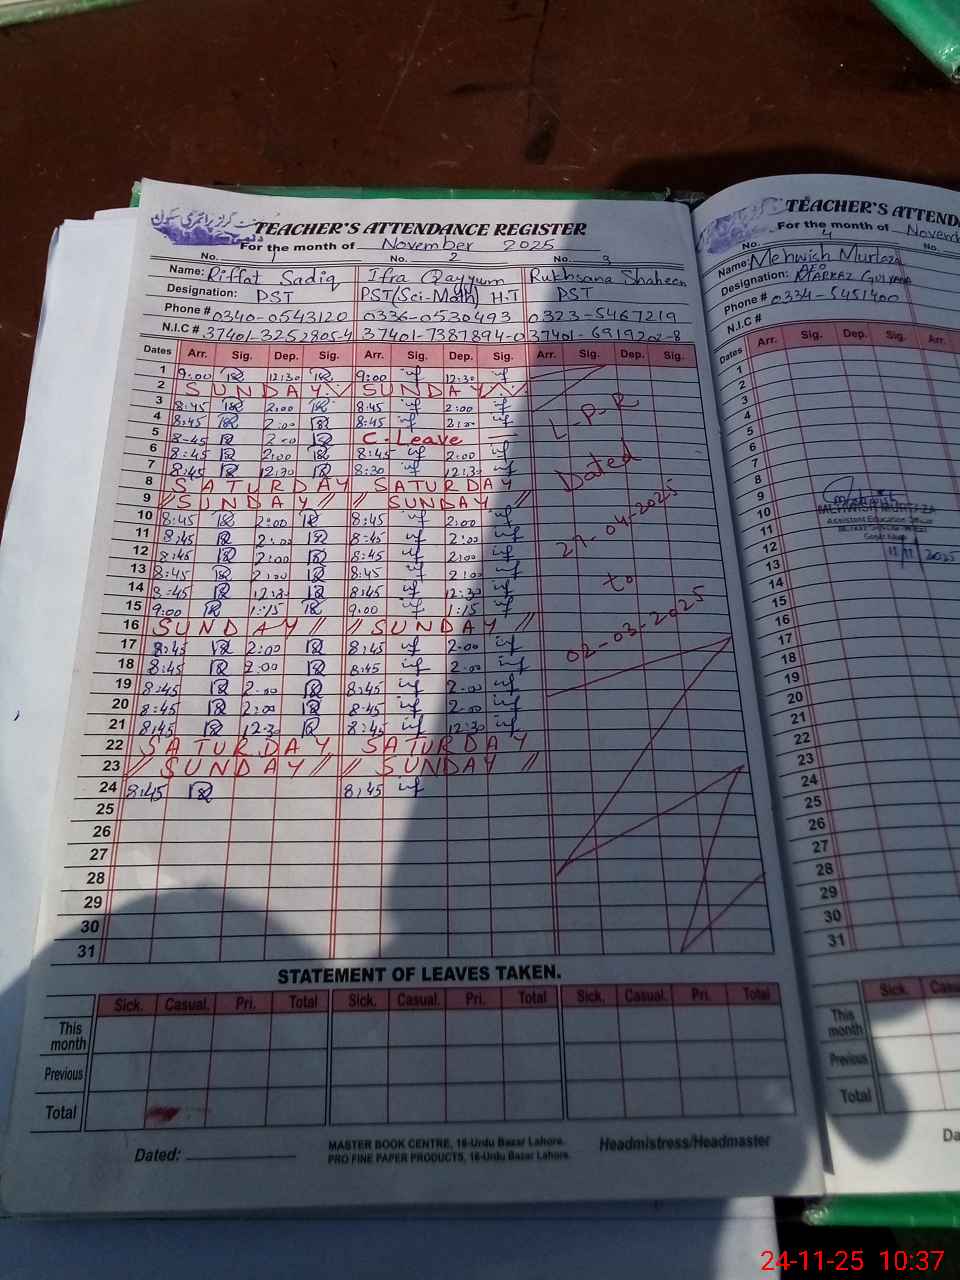 TEACHER'S ATTENDANCE REGISTER
For the month of November 2025
No. 1 No. 2 No. 3
Name: Riffat Sadiq Ifra Qayyum Rukhsana Shaheen
Designation: PST PST(Sci-Math) H.T PST
Phone # 0340-0543120 0336-0530493 0323-5467219
N.I.C # 37401-3252805-4 37401-7387894-0 37401-6919202-8
Dates Arr. Sig. Dep. Sig. Arr. Sig. Dep. Sig. Arr. Sig. Dep. Sig.
1 9:00 12:30 9:00 12:30
2 SUNDAY SUNDAY
3 8:45 2:00 8:45 2:00
4 8:45 2:00 8:45 2:00
5 8-45 2-00 C-Leave
6 8:45 2:00 8:45 2:00
7 8:45 12:30 8:30 12:30
8 SATURDAY SATURDAY
9 // SUNDAY // // SUNDAY //
10 8:45 2:00 8:45 2:00
11 8:45 2:00 8:45 2:00
12 8:45 2:00 8:45 2:00
13 8:45 2:00 8:45 2:00
14 8:45 8:45 12:30
15 9:00 1:15 9:00 1:15
16 SUNDAY // // SUNDAY //
17 8:45 2:00 8:45 2:00
18 8:45 2:00 8:45 2:00
19 8:45 2:00 8:45 2:00
20 8:45 2:00 8:45 2:00
21 8:45 12:30 8:45 12:30
22 SATURDAY SATURDAY
23 // SUNDAY // // SUNDAY //
24 8:45 8:45
25
26
27
28
29
30
31
L-P-R
Dated
29-04-2025
to
02-03-2025
STATEMENT OF LEAVES TAKEN.
Sick. Casual. Pri. Total Sick. Casual. Pri. Total Sick. Casual. Pri. Total
This month
Previous
Total
Dated:
MASTER BOOK CENTRE, 16-Urdu Bazar Lahore.
PRO FINE PAPER PRODUCTS, 16-Urdu Bazar Lahore.
Headmistress/Headmaster
TEACHER'S ATTEND
For the month of Novem
No. 4 No.
Name: Mehwish Murtaza
Designation: AEO MARKAZ GULYANA
Phone # 0334-5451400
N.I.C #
Dates Arr. Sig. Dep. Sig. Arr.
1
2
3
4
5
6
7
8
9
10
11
12
13
14
15
16
17
18
19
20
21
22
23
24
25
26
27
28
29
30
31
MEHWISH MURTAZA
Assistant Education Officer
11/11/2025
Sick. Cas
This month
Previous
Total
Da
24-11-25 10:37